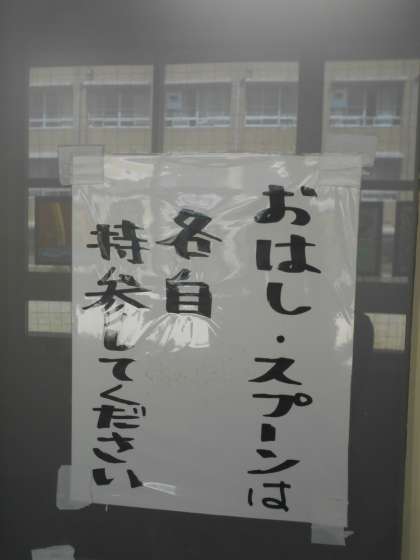 おはし・スプーンは
各自
持参してください